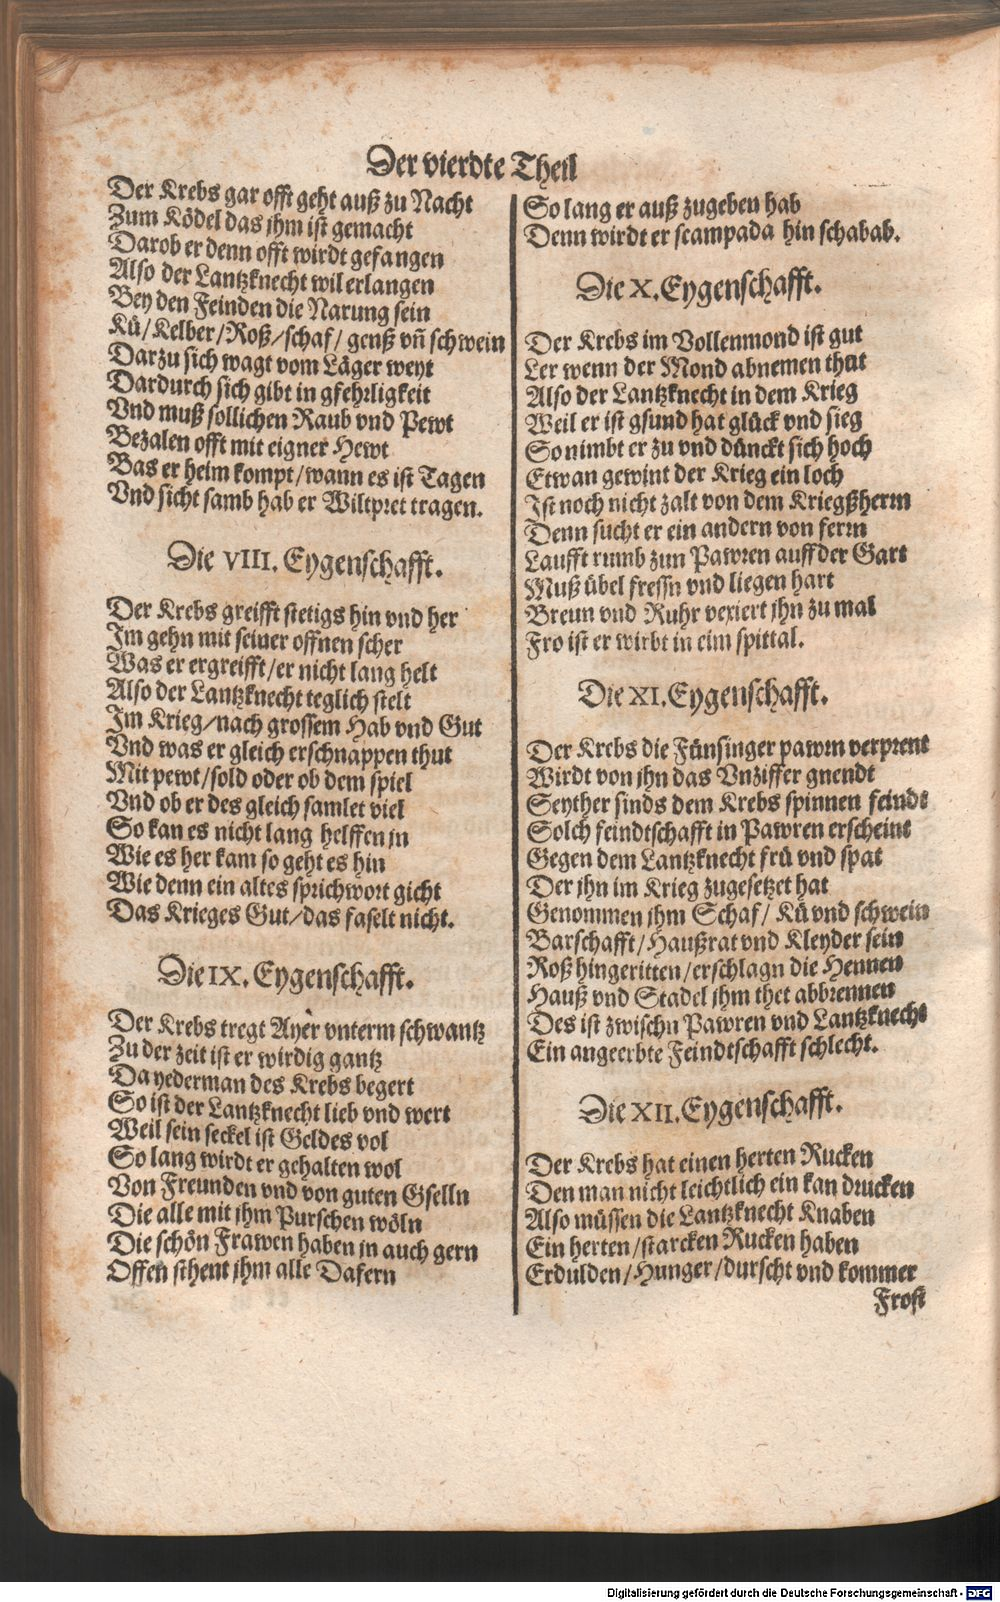 Der vierdte Theil
Der Krebs gar offt geht auß zu Nacht
Zum Ködel das jhm ist gemacht
Darob er denn offt wirdt gefangen
Also der Lantzknecht wil erlangen
Bey den Feinden die Narung sein
Kü/Kelber/Roß/schaf/ genß vñ schwein
Darzu sich wagt vom Läger weyt
Dardurch sich gibt in gfehrligkeit
Vnd muß sollichen Raub vnd Pewt
Bezalen offt mit eigner Hewt
Bas er heim kompt/wann es ist Tagen
Vnd sicht samb hab er Wiltpret tragen.
Die VIII. Eygenschafft.
Der Krebs greifft stetigs hin vnd her
Im gehn mit seiner offnen scher
Was er ergreifft/er nicht lang helt
Also der Lantzknecht teglich stelt
Im Krieg/nach grossem Hab vnd Gut
Vnd was er gleich erschnappen thut
Mit pewt/sold oder ob dem spiel
Vnd ob er des gleich samlet viel
So kan es nicht lang helffen jn
Wie es her kam so geht es hin
Wie denn ein altes sprichwort gicht
Das Krieges Gut/das faselt nicht.
Die IX. Eygenschafft.
Der Krebs tregt Ayer vnterm schwantz
Zu der zeit ist er wirdig gantz
Da yederman des Krebs begert
So ist der Lantzknecht lieb vnd wert
Weil sein seckel ist Geldes vol
So lang wirdt er gehalten wol
Von Freunden vnd von guten Gselln
Die alle mit jhm Purschen wöln
Die schön Frawen haben jn auch gern
Offen sthent jhm alle Dafern
So lang er auß zugeben hab
Denn wirdt er scampada hin schabab.
Die X. Eygenschafft.
Der Krebs im Vollenmond ist gut
Ler wenn der Mond abnemen thut
Also der Lantzknecht in dem Krieg
Weil er ist gsund hat glück vnd sieg
So nimbt er zu vnd dünckt sich hoch
Etwan gewint der Krieg ein loch
Ist noch nicht zalt von dem Kriegßherrn
Denn sucht er ein andern von ferrn
Laufft rumb zun Pawren auff der Gart
Muß übel fressn vnd liegen hart
Breun vnd Ruhr vexiert jhn zu mal
Fro ist er wirbt in eim spittal.
Die XI. Eygenschafft.
Der Krebs die Fünsinger pawrn verprent
Wirdt von jhn das Vnziffer gnendt
Seyther sinds dem Krebs spinnen feindt
Solch feindtschafft in Pawren erscheint
Gegen dem Lantzknecht frü vnd spat
Der jhn im Krieg zugesetzet hat
Genommen jhm Schaf/ Kü vnd schwein
Barschafft/Haußrat vnd Kleyder sein
Roß hingeritten/erschlagn die Hennen
Hauß vnd Stadel jhm thet abbrennen
Des ist zwischn Pawren vnd Lantzknecht
Ein angeerbte Feindtschafft schlecht.
Die XII. Eygenschafft.
Der Krebs hat einen herten Rucken
Den man nicht leichtlich ein kan drucken
Also müssen die Lantzknecht Knaben
Ein herten/starcken Rucken haben
Erdulden/Hunger/durscht vnd kommer
Frost
Digitalisierung gefördert durch die Deutsche Forschungsgemeinschaft - DFG